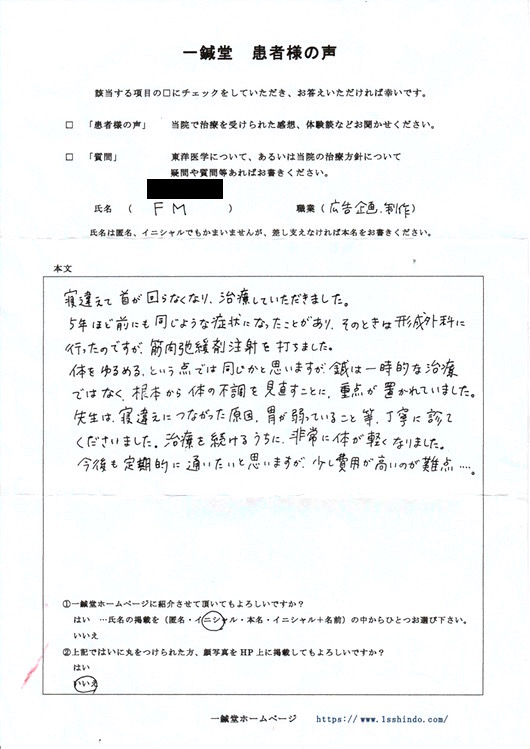 一鍼堂 患者様の声
該当する項目の□にチェックをしていただき、お答えいただければ幸いです。
□ 「患者様の声」 当院で治療を受けられた感想、体験談などお聞かせください。
□ 「質問」 東洋医学について、あるいは当院の治療方針について
疑問や質問等あればお書きください。
氏名 ( FM ) 職業 (広告企画.制作)
氏名は匿名、イニシャルでもかまいませんが、差し支えなければ本名をお書きください。
本文
寝違えて首が回らなくなり、治療していただきました。
5年ほど前にも同じような症状になったことがあり、そのときは形成外科に
行ったのですが、筋肉弛緩剤注射を打ちました。
体をゆるめる、という点では同じかと思いますが、鍼は一時的な治療
ではなく、根本から体の不調を見直すことに、重点が置かれていました。
先生は、寝違えにつながった原因、胃が弱っていること等、丁寧に診て
くださいました。治療を続けるうちに、非常に体が軽くなりました。
今後も定期的に通いたいと思いますが、少し費用が高いのが難点…。
①一鍼堂ホームページに紹介させて頂いてもよろしいですか?
はい …氏名の掲載を(匿名・イニシャル・本名・イニシャル+名前)の中からひとつお選び下さい。
いいえ
②上記ではいに丸をつけられた方、顔写真をHP上に掲載してもよろしいですか?
はい
いいえ
一鍼堂ホームページ https://www.1sshindo.com/